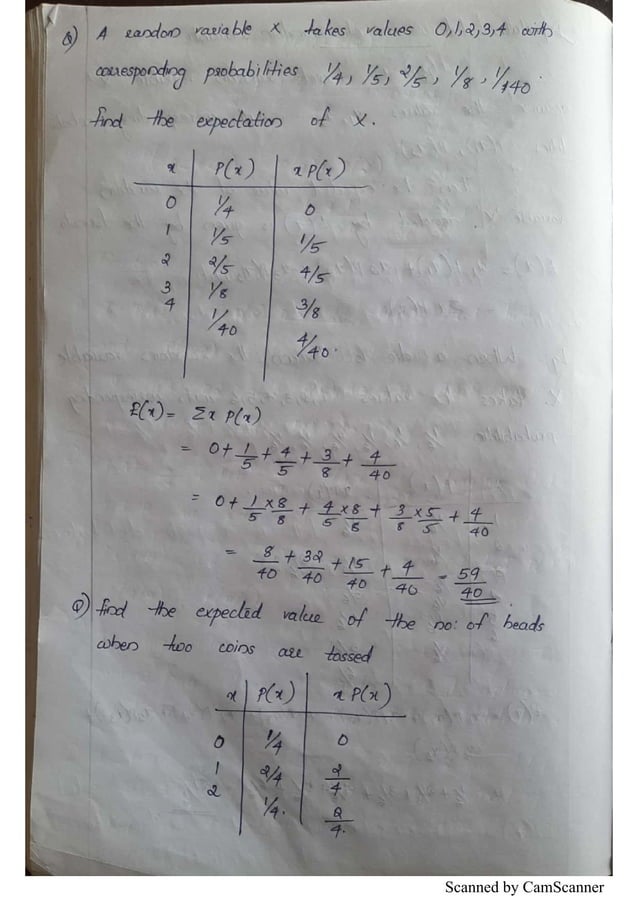 Q) A random variable x takes values 0,1,2,3,4 with
corresponding probabilities 1/4, 1/5, 2/5, 1/8, 1/40.
find the expectation of x.
x | P(x) | x P(x)
0 | 1/4 | 0
1 | 1/5 | 1/5
2 | 2/5 | 4/5
3 | 1/8 | 3/8
4 | 1/40 | 4/40.
E(x) = Σx P(x)
= 0 + 1/5 + 4/5 + 3/8 + 4/40
= 0 + 1/5 × 8/8 + 4/5 × 8/8 + 3/8 × 5/5 + 4/40
= 8/40 + 32/40 + 15/40 + 4/40 = 59/40.
Q) find the expected value of the no: of heads
when two coins are tossed
x | P(x) | x P(x)
0 | 1/4 | 0
1 | 2/4 | 2/4
2 | 1/4. | 2/4.
Scanned by CamScanner